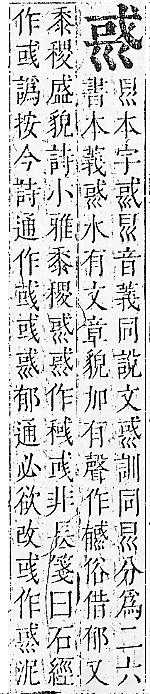 㦽
本字音義同說文㦽訓同分爲二六
書本義㦽水有文章貌加有聲作俗借郁又
黍稷盛貌詩小雅黍稷㦽㦽作稶彧非長箋曰石經
作彧譌按今詩通作彧彧㦽郁通必欲改彧作㦽泥